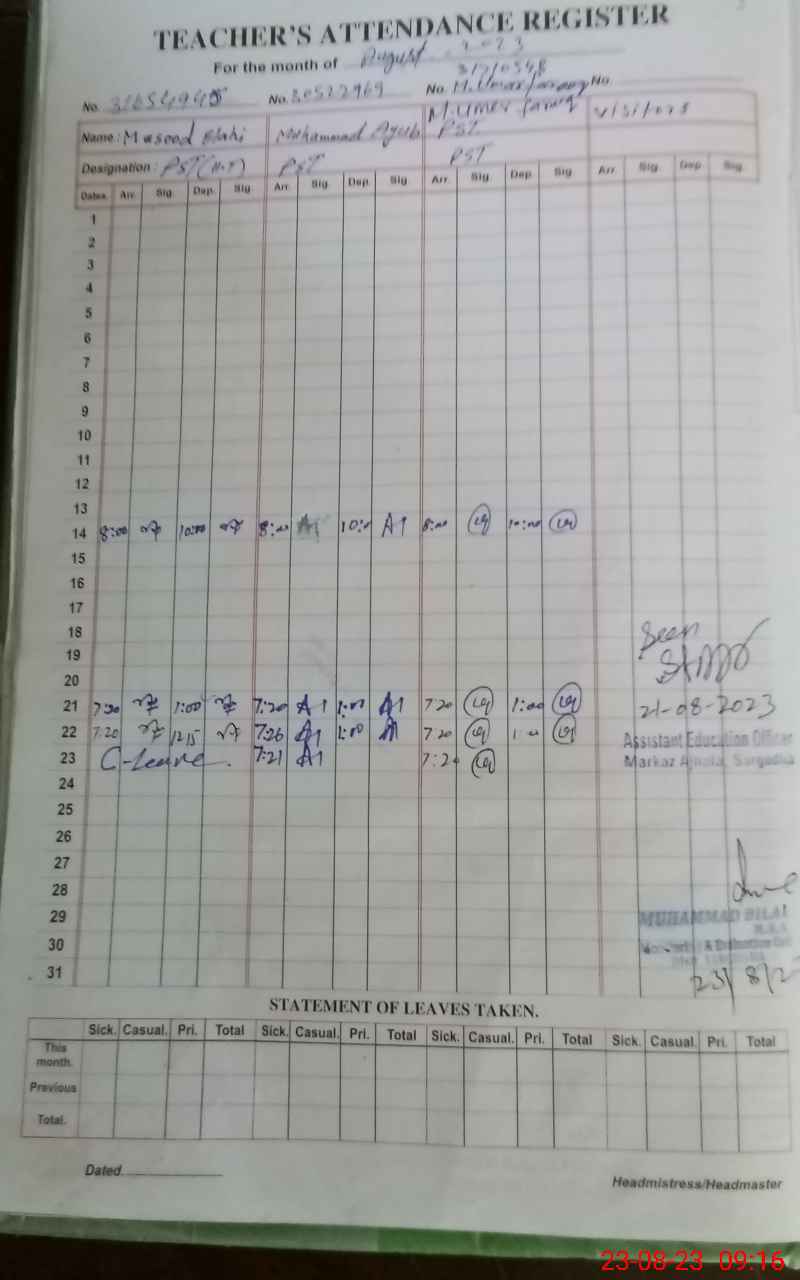 TEACHER'S ATTENDANCE REGISTER
For the month of August 2023
No. No. 30522969 No. M. Umar farooq No.
Name: Masood Elahi Muhammad Ayub M. Umer farooq
PST
Designation: PST (H.T) PST PST
Dates. Arr. Sig. Dep. Sig. Arr. Sig. Dep. Sig. Arr. Sig. Dep. Sig. Arr. Sig. Dep. Sig.
1
2
3
4
5
6
7
8
9
10
11
12
13
14 8:00 10:00 8:00 A1 10:0 A1 8:00 10:00
15
16
17
18
19
20
Seen
21 7:20 1:00 7:20 A1 1:00 A1 7:20 1:00 21-08-2023
22 7:20 12:15 7:26 A1 1:00 7:20 1:00 Assistant Education Officer
23 C-Leave. 7:21 A1 7:20 Markaz Sargodha
24
25
26
27
28
29 MUHAMMAD BILAL
30 & Evaluation
31 23/8/2
STATEMENT OF LEAVES TAKEN.
Sick. Casual. Pri. Total Sick. Casual. Pri. Total Sick. Casual. Pri. Total Sick. Casual. Pri. Total
This month.
Previous
Total.
Dated.
Headmistress/Headmaster
23-08-23 09:16